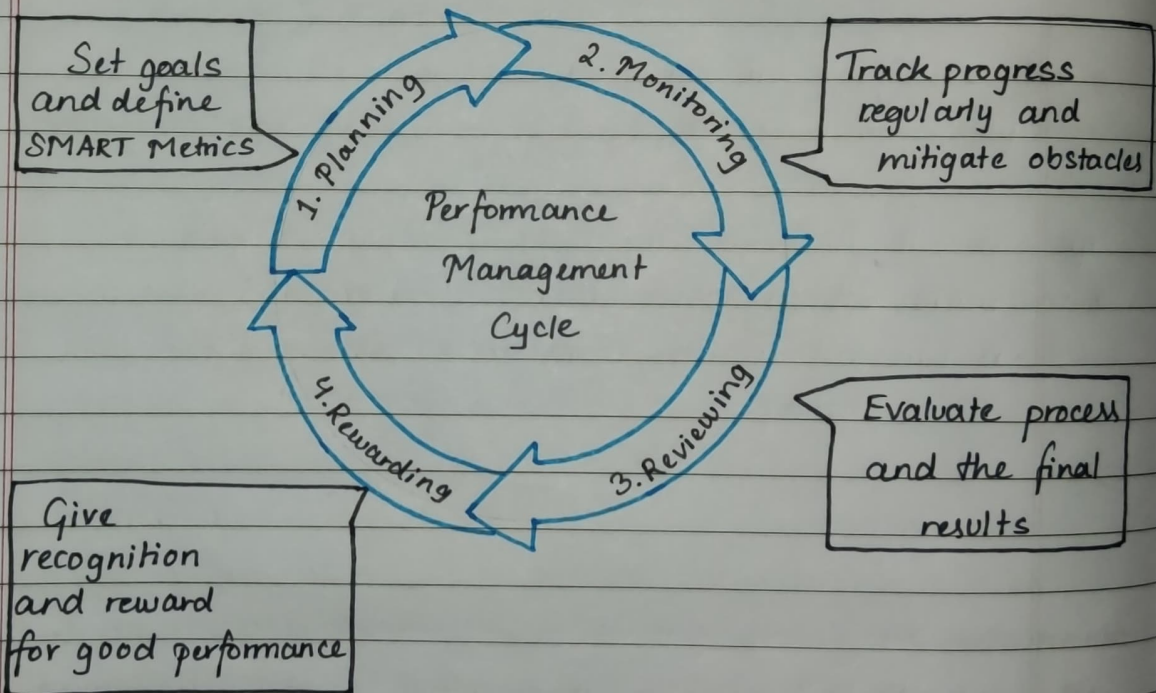 Set goals
and define
SMART Metrics
1. Planning
2. Monitoring
Track progress
regularly and
mitigate obstacles
Performance
Management
Cycle
3. Reviewing
Evaluate process
and the final
results
4. Rewarding
Give
recognition
and reward
for good performance